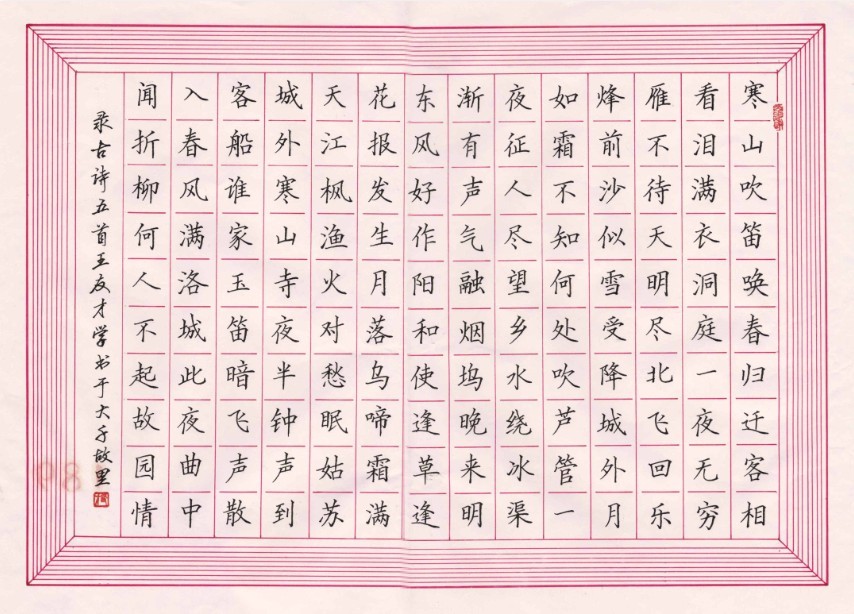 寒山吹笛唤春归迁客相
看泪满衣洞庭一夜无穷
雁不待天明尽北飞回乐
烽前沙似雪受降城外月
如霜不知何处吹芦管一
夜征人尽望乡水绕冰渠
渐有声气融烟坞晚来明
东风好作阳和使逢草逢
花报发生月落乌啼霜满
天江枫渔火对愁眠姑苏
城外寒山寺夜半钟声到
客船谁家玉笛暗飞声散
入春风满洛城此夜曲中
闻折柳何人不起故园情
录古诗五首王友才学书于大千故里